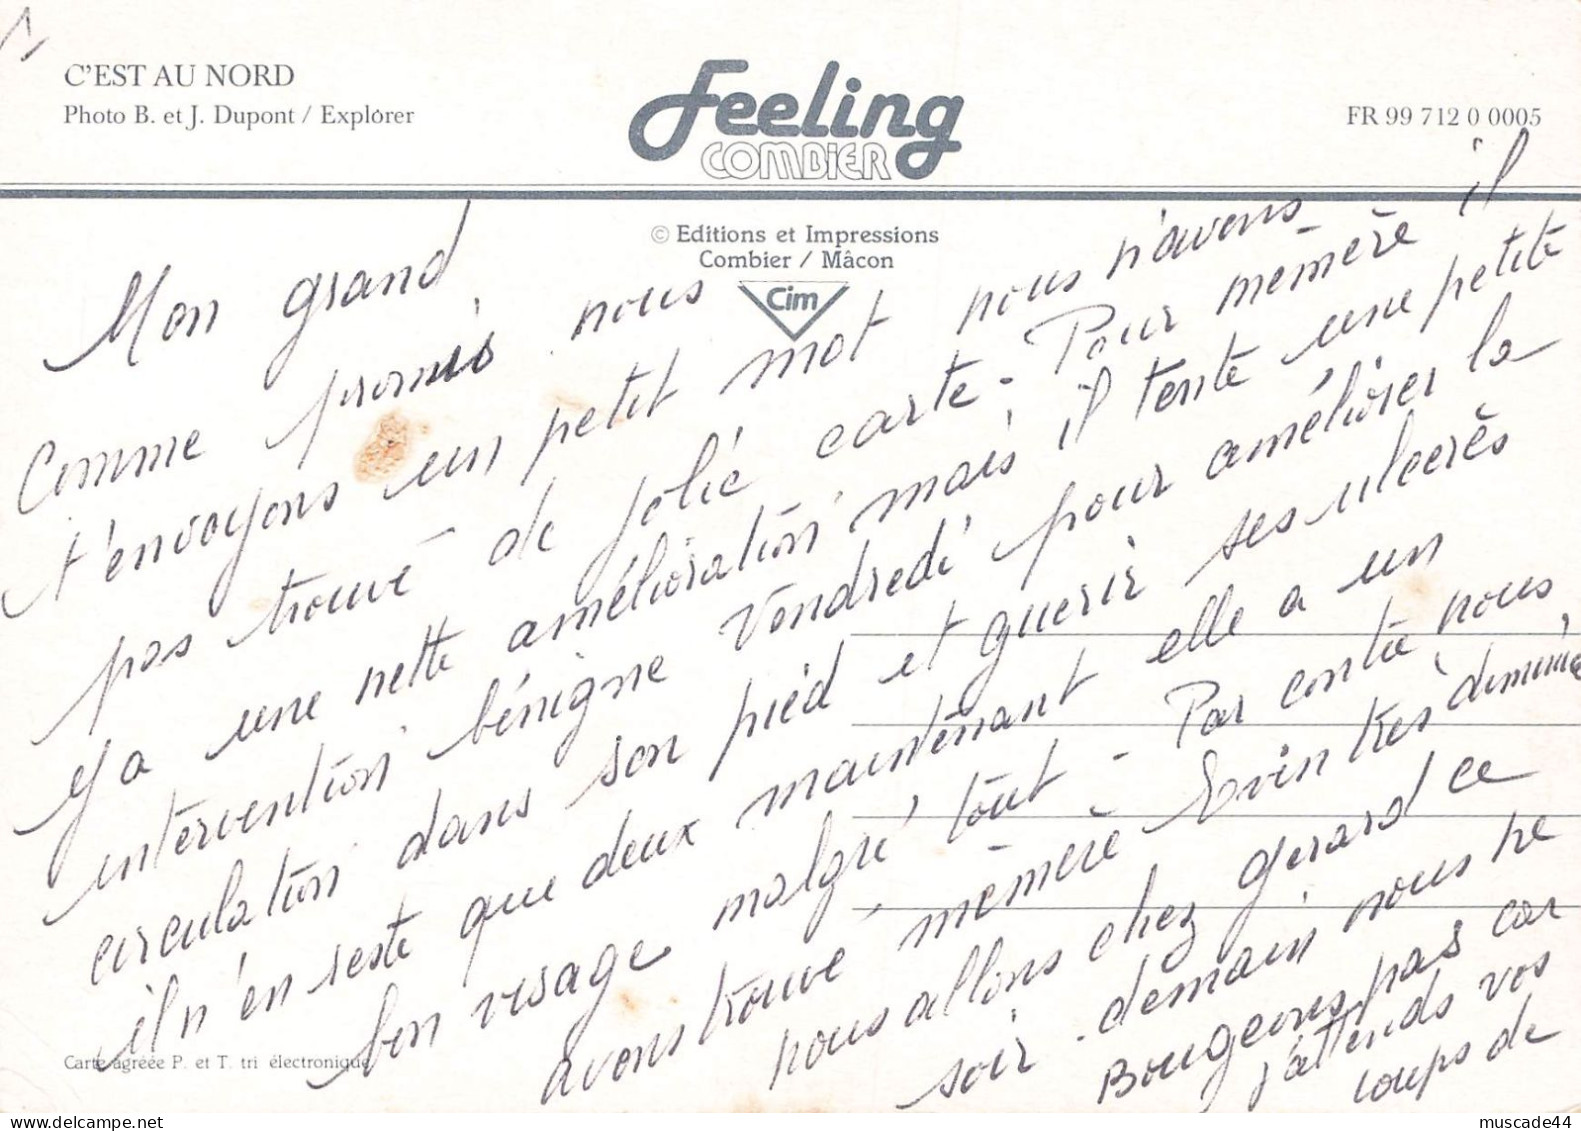 C'EST AU NORD
Photo B. et J. Dupont / Explorer
Feeling
COMBIER
FR 99 712 0 0005
© Editions et Impressions
Combier / Mâcon
Cim
Mon grand
Comme promis nous
t'envoyons un petit mot nous n'avons
pas trouvé de jolie carte - Pour mémère il
y a une nette amélioration mais il tente une petite
intervention bénigne Vendredi pour améliorer la
circulation dans son pied et guerir ses ulcères
il n'en reste que deux maintenant elle a un
bon visage malgré tout - Par contre nous
avons trouvé mémère très diminuée
nous allons chez gerard ce
soir - demain nous ne
Bougeons pas car
j'attends vos
coups de
Carte agréée P. et T. tri électronique
muscade44